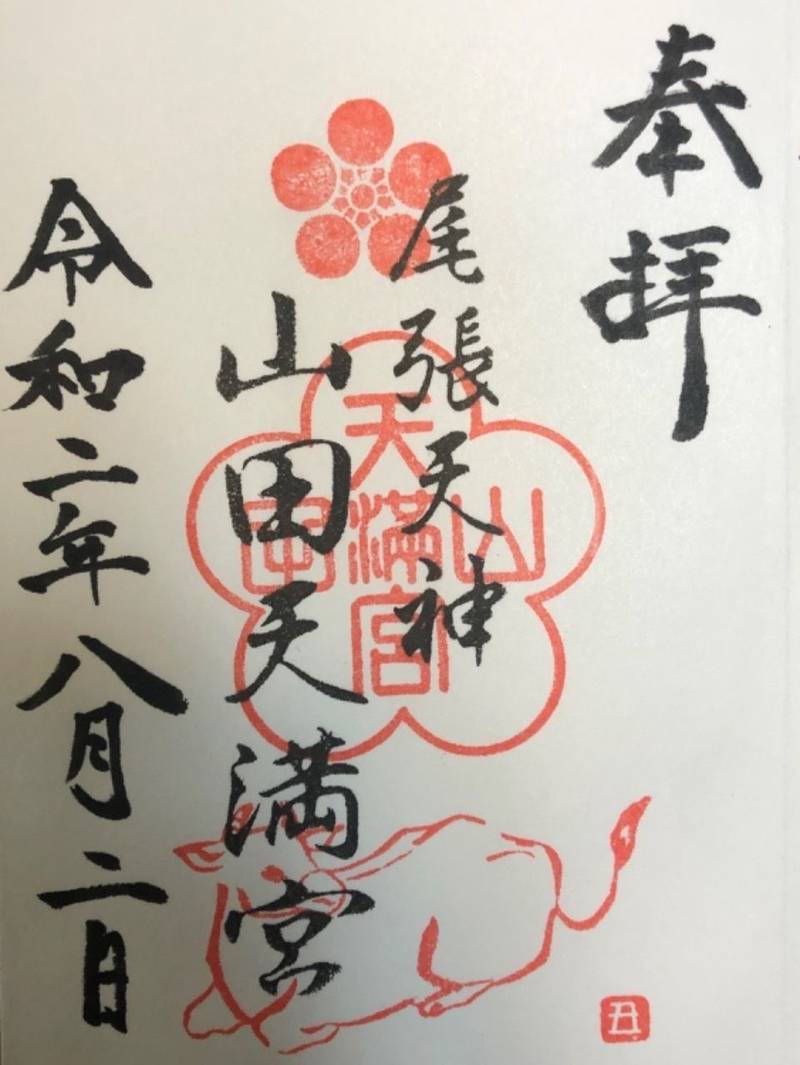 奉拝
尾張天神
山田天満宮
令和二年八月二日
天
山満田
宮
丑